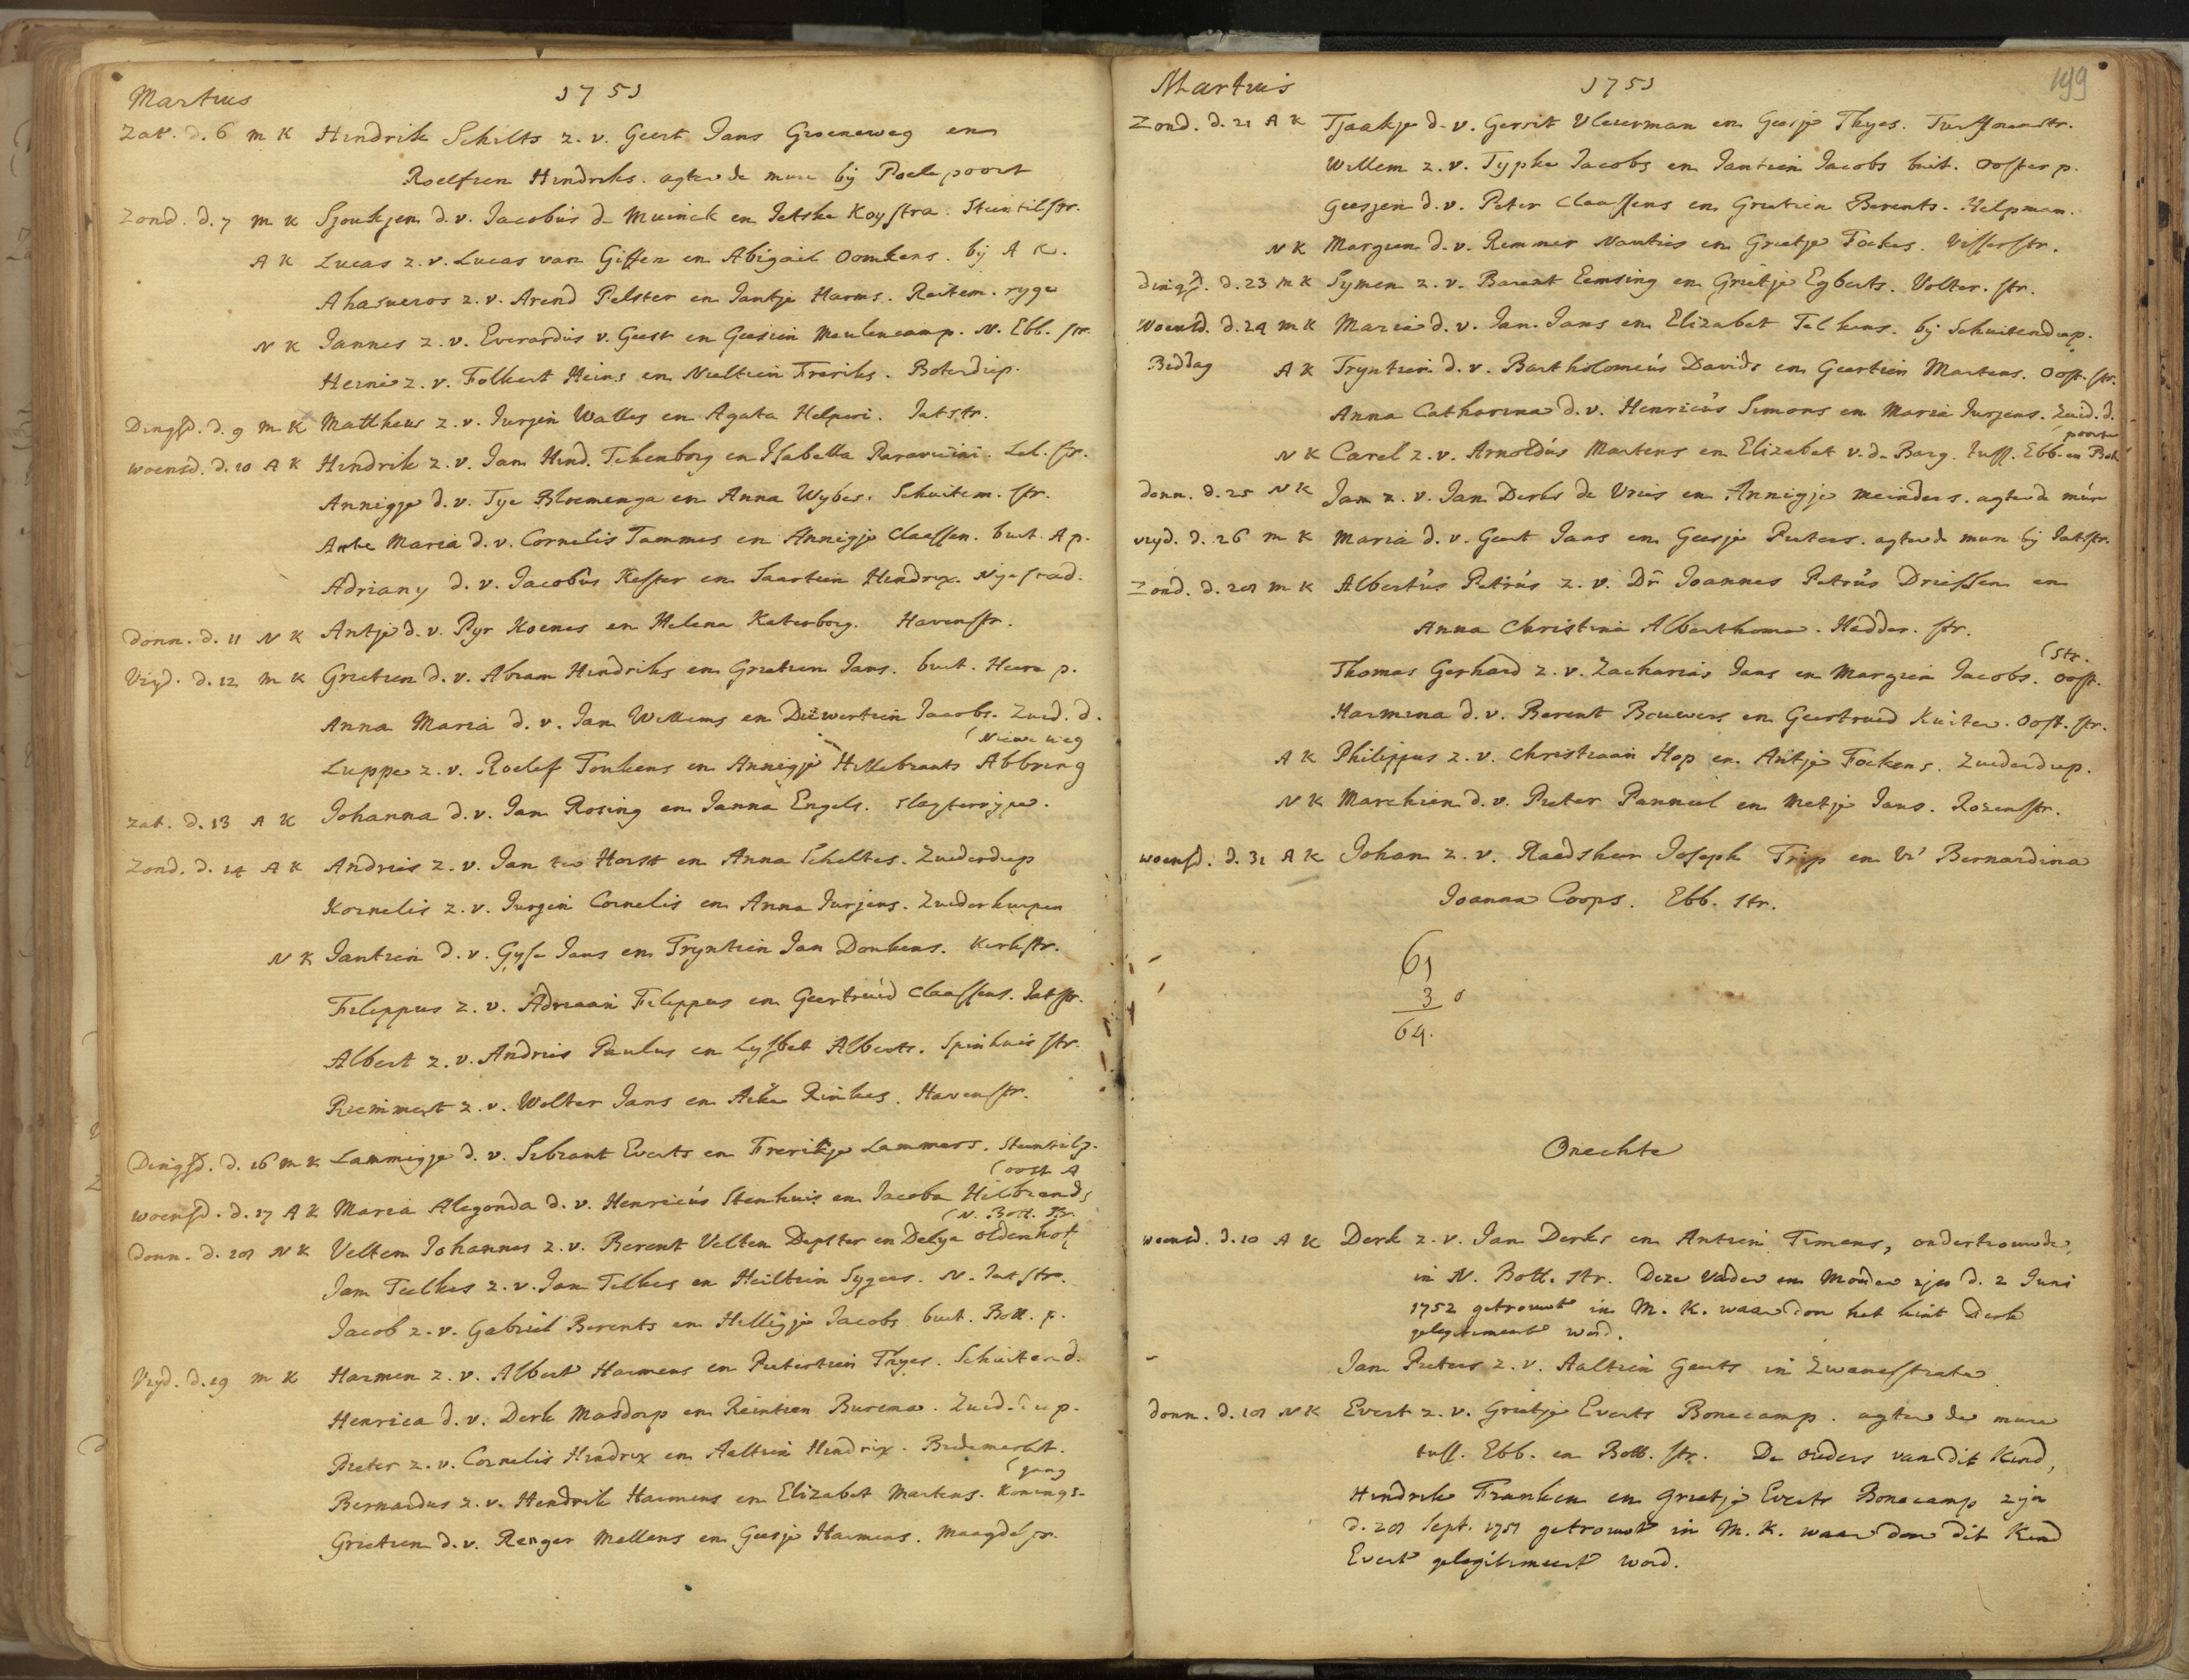 Martius 1751
Zat. d. 6 M K Hindrik Schilts z. v. Geert Jans Groeneweg en
Roelfien Hindriks. agter de mure bij Poelepoort
Zond. d. 7 M K Sjoukjen d. v. Jacobus de Muinck en Jetske Koystra. Steentilstr.
A K Lucas z. v. Lucas van Giffen en Abigail Oomkens. bij A K.
Ahasueros z. v. Arend Pelster en Jantje Harms. Reitem. ryge
N K Jannes z. v. Everardus v. Geest en Geesien Meulencamp. N. Ebb. str.
Heine z. v. Folkert Heins en Nieltien Freriks. Boterdiep.
Dingsd. d. 9 M K Mattheus z. v. Jurgen Walles en Agata Helperi. Jatstr.
Woensd. d. 10 A K Hindrik z. v. Jan Hind. Tekenborg en Isabella Paravicini. Lel. str.
Annigje d. v. Tye Bloemenga en Anna Wybes. Schuitem. str.
Antie Maria d. v. Cornelis Tammes en Annigje Claassen. buit. A p.
Adriany d. v. Jacobus Kester en Saartien Hendrix. Nyestad.
Donn. d. 11 N K Antje d. v. Pyr Koenes en Helena Katerborg. Havenstr.
Vryd. d. 12 M K Grietien d. v. Abram Hindriks en Grietien Jans. buit. Heere p.
Anna Maria d. v. Jan Willems en Diewertien Jacobs. Zuid. d.
(Nieuwe weg
Luppe z. v. Roelef Tonkens en Annigje Hillebrants Abbring
Zat. d. 13 A K Johanna d. v. Jan Rosing en Janna Engels. Slagterryge.
Zond. d. 14 A K Andries z. v. Jan ter Horst en Anna Scheltes. Zuiderdiep
Kornelis z. v. Jurgen Cornelis en Anna Jurjens. Zuiderkuipen
N K Jantien d. v. Gyse Jans en Tryntien Jan Donkens. Kerkstr.
Filippus z. v. Adriaan Filippus en Geertruid Claassens. Jatstr.
Albert z. v. Andries Paulus en Lysbet Alberts. Spinhuis str.
Remmert z. v. Wolter Jans en Aike Rinkes. Havenstr.
Dingsd. d. 16 M K Lammigje d. v. Sebrant Everts en Frerikje Lammers. Steentilp.
(oost A
Woensd. d. 17 A K Maria Alegonda d. v. Henricus Stenhuis en Jacoba Hilbrands
(N. Bott. str.
Donn. d. 18 N K Veltem Johannes z. v. Berent Velten Depster en Delya Oldenhof
Jan Teelkes z. v. Jan Telkes en Heiltien Sygers. N. Jatstr.
Jacob z. v. Gabriel Berents en Hilligje Jacobs buit. Bott. p.
Vryd. d. 19 M K Harmen z. v. Albert Harmens en Pietertien Thyes. Schuitend.
Henrica d. v. Derk Masdorp en Reintien Burema. Zuid. diep.
Pieter z. v. Cornelis Hindrix en Aaltien Hindrix. Bredemerkt.
(gang
Bernardus z. v. Hendrik Harmens en Elizabet Martens. Konings-
Grietien d. v. Renger Mellens en Geesje Harmens. Maagdestr.
Martius 1751 199
Zond. d. 21 A K Tjaakje d. v. Gerrit Vleuerman en Geesje Thyes. Turftorenstr.
Willem z. v. Typke Jacobs en Jantien Jacobs buit. Ooster p.
Geesjen d. v. Peter Claassens en Grietien Berents. Helpman.
N K Margien d. v. Remmer Nanties en Grietje Fockes. Visserstr.
Dingsd. d. 23 M K Symen z. v. Barent Eemsing en Grietje Egberts. Volter. str.
Woensd. d. 24 M K Maria d. v. Jan Jans en Elizabet Telkens. bij Schuitendiep.
Biddag A K Tryntien d. v. Bartholomeus Davids en Geertien Martens. Oost. str.
Anna Catharina d. v. Henricus Simons en Maria Jurjens. Zuid. d.
(poorte
N K Carel z. v. Arnoldus Martens en Elizabet v. d. Barg. tuss. Ebb. en Bot.
Donn. d. 25 N K Jan z. v. Jan Derks de Vries en Annigje Meinders. agter de mure
Vryd. d. 26 M K Maria d. v. Geert Jans en Geesje Pieters. agter de mure bij Jatstr.
Zond. d. 28 M K Albertus Petrus z. v. Dr. Joannes Petrus Driessen en
Anna Christina Alberthoma. Hadder. str.
(str.
Thomas Gerhard z. v. Zacharias Jans en Margien Jacobs. Oost.
Harmina d. v. Berent Brouwers en Geertruid Kuiter. Oost. str.
A K Philippus z. v. Christiaan Hop en Antje Fockens. Zuiderdiep.
N K Marchien d. v. Pieter Panneel en Metje Jans. Rozenstr.
Woensd. d. 31 A K Johan z. v. Raadsheer Joseph Trip en Vr. Bernardina
Joanna Coops. Ebb. str.
61
3 o
64.
Onechte
Woensd. d. 10 A K Derk z. v. Jan Derks en Antien Timens, ondertrouwde,
in N. Bott. str. Deze Vader en Moeder zyn d. 2 Juni
1752 getrouwt in M. K. waardoor het kint Derk
gelegitimeert word.
Jan Pieters z. v. Aaltien Geerts in Zwanestrate
Donn. d. 18 N K Evert z. v. Grietje Everts Bonecamp. agter de mure
tuss. Ebb. en Bott. str. De ouders van dit Kind,
Hindrik Franken en Grietje Everts Bonecamp zyn
d. 28 Sept. 1751 getrouwt in M. K. waar door dit Kind
Evert gelegitimeert word.